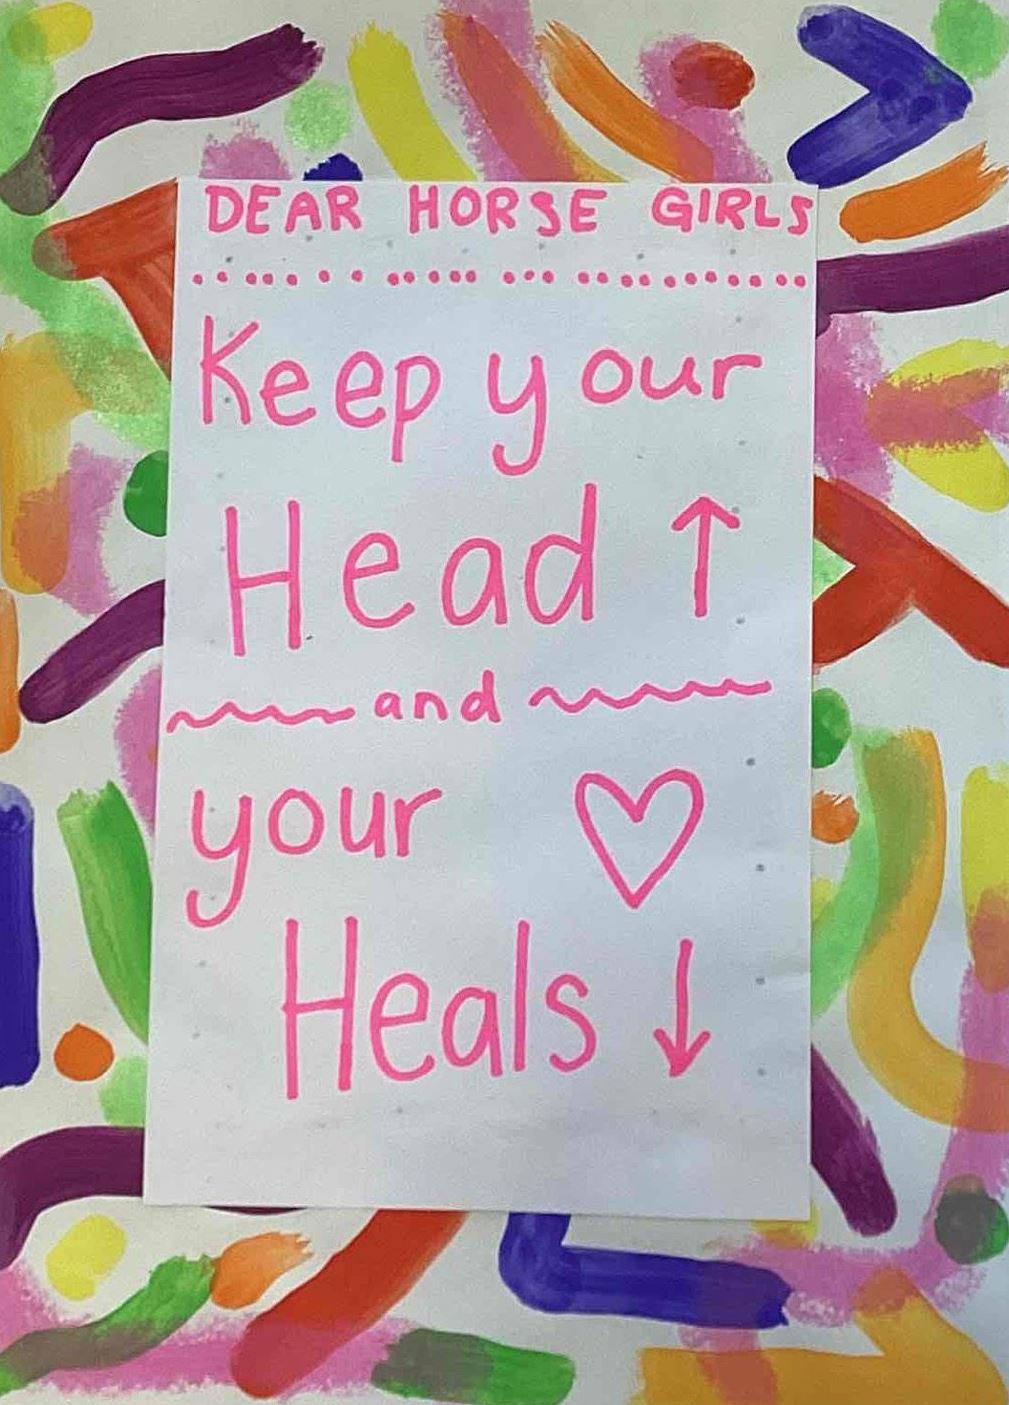 DEAR HORSE GIRLS
Keep your
Head ↑
and
your ♡
Heals ↓